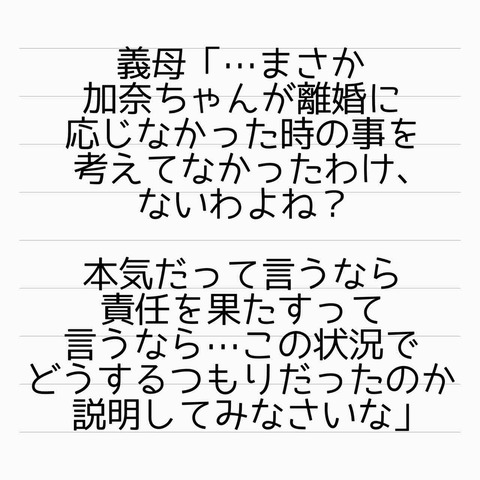 義母「…まさか
加奈ちゃんが離婚に
応じなかった時の事を
考えてなかったわけ、
ないわよね？
本気だって言うなら
責任を果たすって
言うなら…この状況で
どうするつもりだったのか
説明してみなさいな」